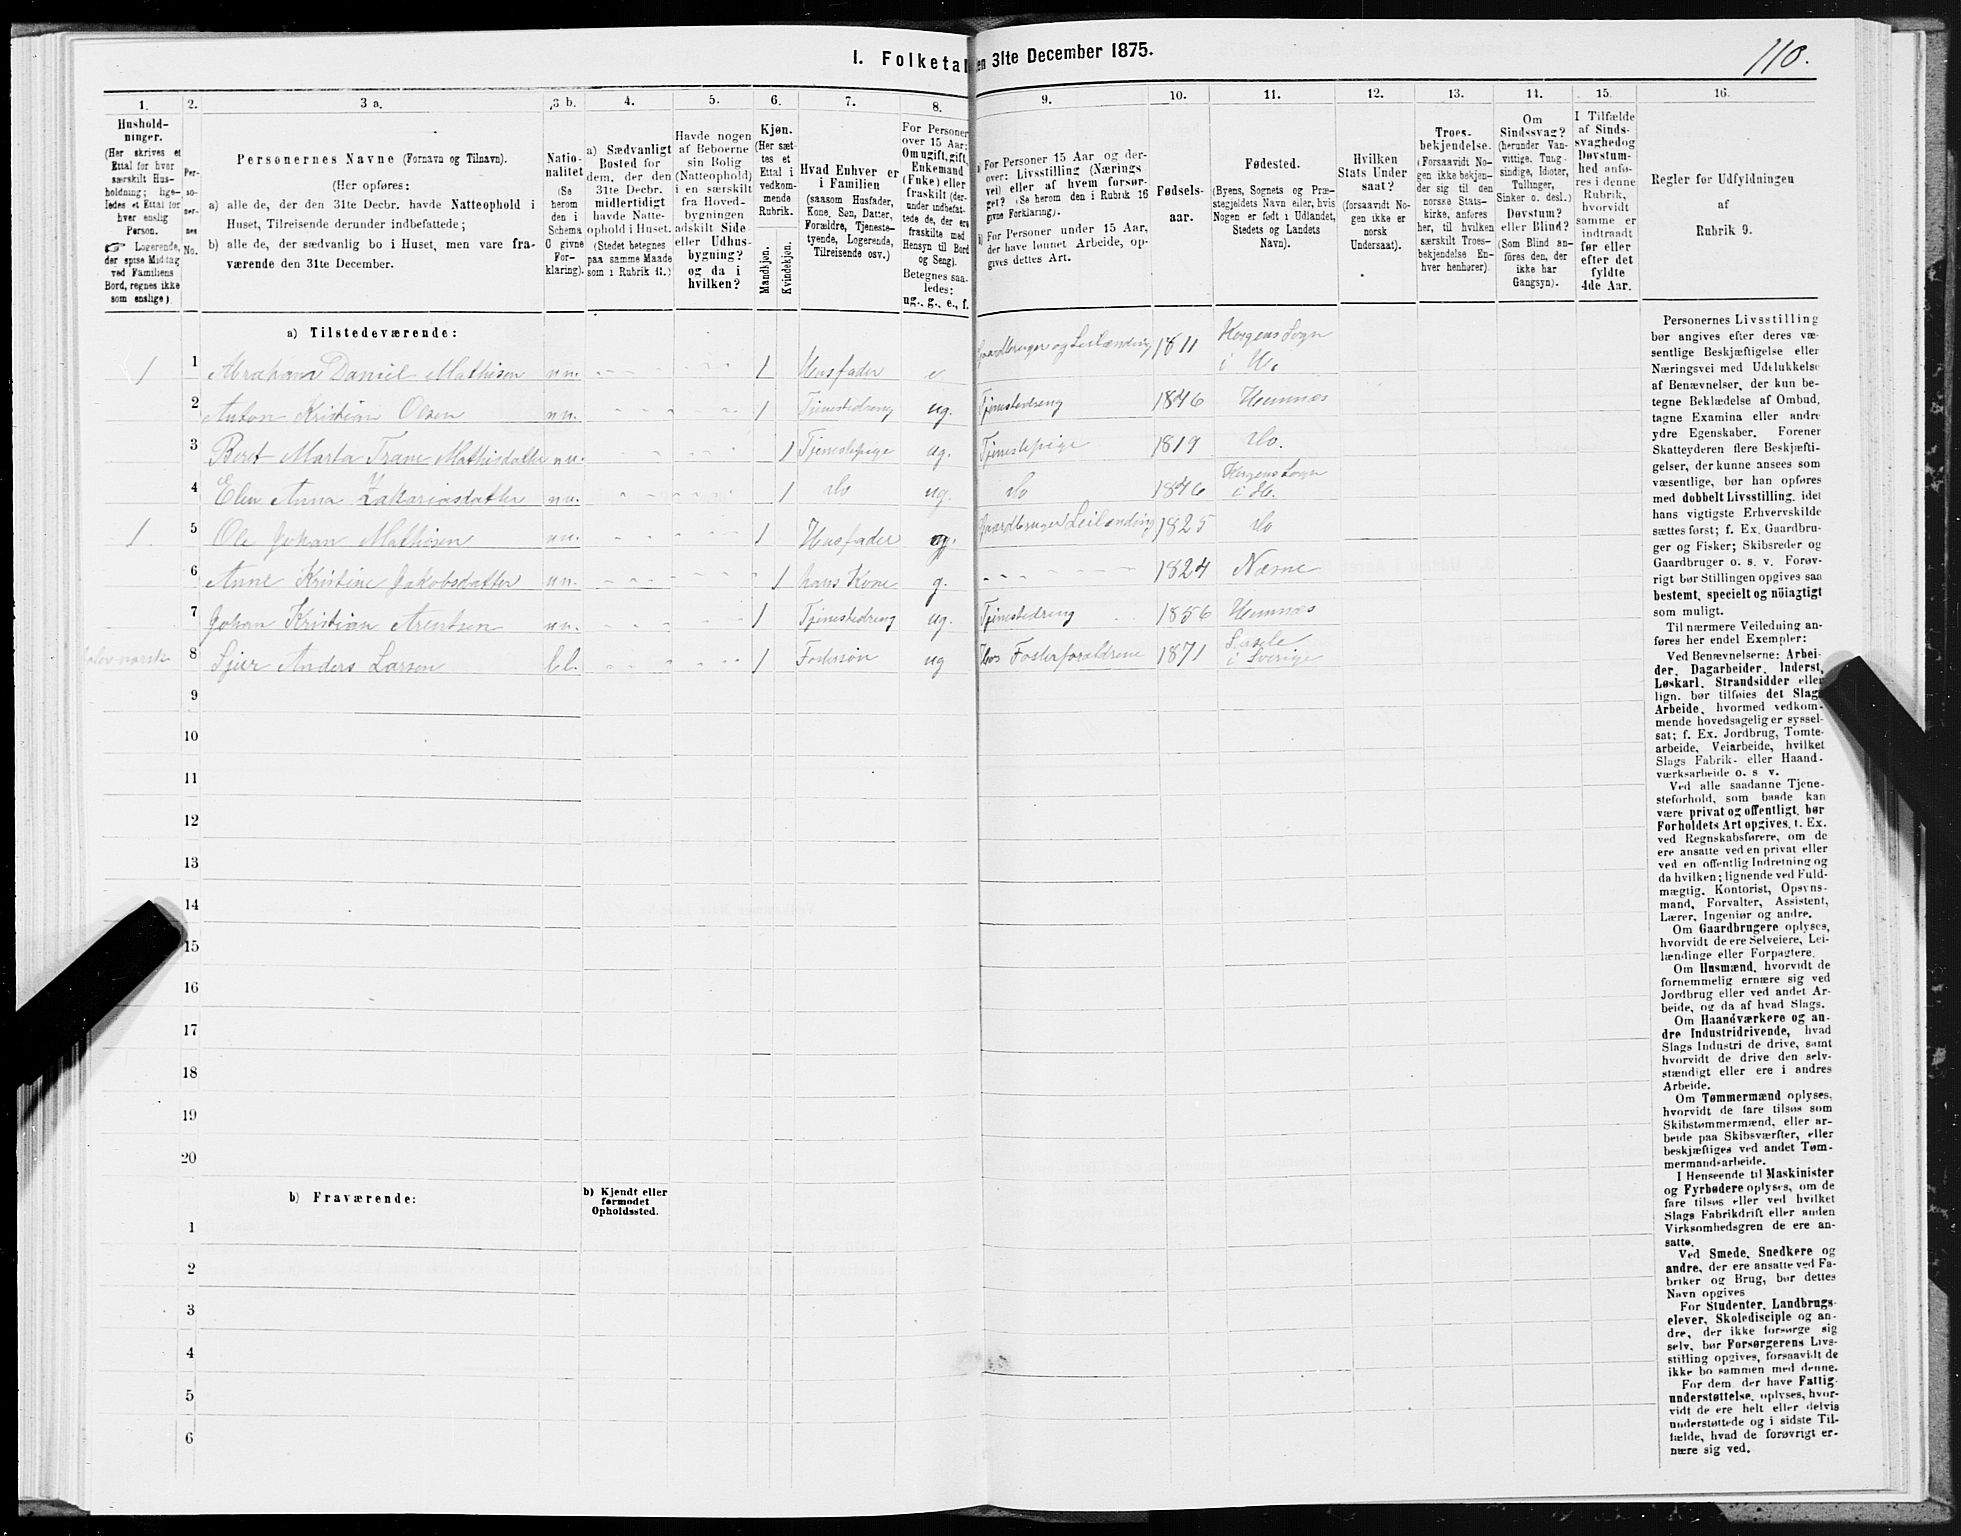 110.
I. Folketal den 31te December 1875.
1.
Hushold-
ninger.
(Her skrives et
Ettal for hver
særskilt Hus-
holdning; lige-
ledes et Ettal for
hver enslig
Person.
☞ Logerende,
der spise Middag
ved Familiens
Bord, regnes ikke
som enslige).
2.
Per-
so-
ner-
nes
No.
3 a.
Personernes Navne (Fornavn og Tilnavn).
(Her opføres:
a) alle de, der den 31te Decbr. havde Natteophold i
Huset, Tilreisende derunder indbefattede;
b) alle de, der sædvanlig bo i Huset, men vare fra-
værende den 31te December.
3 b.
Natio-
nalitet
(Se
herom
den i
Schema
O givne
For-
klaring).
4.
a) Sædvanligt
Bosted for
dem, der den
31te Decbr.
midlertidigt
havde Natte-
ophold i Huset.
(Stedet betegnes
paa samme Maade
som i Rubrik 11.)
5.
Havde nogen
af Beboerne
sin Bolig
(Natteophold)
i en særskilt
fra Hoved-
bygningen
adskilt Side-
eller Udhus-
bygning?
og da i
hvilken?
6.
Kjøn.
(Her sæt-
tes et
Ettal i
vedkom-
mende
Rubrik.
Mandkjøn.
Kvindekjøn.
7.
Hvad Enhver er
i Familien
(saasom Husfader,
Kone, Søn, Datter,
Forældre, Tjeneste-
tyende, Logerende,
Tilreisende osv.)
8.
For Personer
over 15 Aar:
Om ugift, gift,
Enkemand
(Enke) eller
fraskilt (der-
under indbefat-
tede de, der ere
fraskilte med
Hensyn til Bord
og Seng).
Betegnes saa-
ledes:
ug., g., e., f.
9.
a) For Personer 15 Aar og der-
over: Livsstilling (Nærings
vei) eller af hvem forsør-
get? (Se herom den i Rubrik 16
givne Forklaring).
b) For Personer under 15 Aar,
der have lønnet Arbeide, op-
gives dettes Art.
10.
Fødsels-
aar.
11.
Fødested.
(Byens, Sognets og Præ-
stegjeldets Navn eller, hvis
Nogen er født i Udlandet,
Stedets og Landets
Navn).
12.
Hvilken
Stats Under
saat?
(forsaavidt No-
gen ikke er
norsk
Undersaat).
13.
Troes-
bekjendelse.
(Forsaavidt No-
gen ikke bekjen-
der sig til den
norske Stats-
kirke, anføres
her, til hvilken
særskilt Troes-
bekjendelse En-
hver henhører).
14.
Om
Sindssvag?
(herunder Van-
vittige, Tung-
sindige, Idioter,
Tullinger,
Sinker o. desl.)
Døvstum?
eller Blind?
(Som Blind an-
føres den, der
ikke har
Gangsyn).
15.
I Tilfælde
af Sinds-
svaghed og
Døvstum-
hed anfø-
res i denne
Rubrik,
hvorvidt
samme er
indtraadt
før eller
efter det
fyldte
4de Aar.
16.
Regler for Udfyldningen
af
Rubrik 9.
a) Tilstedeværende:
1 1 Abraham Daniel Mathisen nn. 1 Husfader e. Gaardbruger og Leilænding 1811 Korgens Sogn i H.
2 Anton Kristian Olsen nn. 1 Tjenestedreng ug. Tjenestedreng 1846 Hemnæs
3 Beret Marta Trane Mathisdatter nn. 1 Tjenestepige ug. Tjenestepige 1819 Do.
4 Elen Anna Zakariasdatter nn. 1 Do ug. Do 1846 Korgens Sogn i H.
1 5 Ole Johan Mathisen nn. 1 Husfader g. Gaardbruger Leilænding 1825 Do
6 Anne Kristine Jakobsdatter nn. 1 hans Kone g. 1824 Næsne
7 Johan Kristian Arentsen nn. 1 Tjenestedreng ug. Tjenestedreng 1856 Hemnæs
norsk 8 Sjur Anders Larsen b.l. 1 Fostersøn ug Hos Fosterforældrene 1871 i Sverige
9
10
11
12
13
14
15
16
17
18
19
20
b) Fraværende:
b) Kjendt eller
formodet
Opholdssted.
1
2
3
4
5
6
Personernes Livsstilling
bør angives efter deres væ-
sentlige Beskjæftigelse eller
Næringsvei med Udelukkelse
af Benævnelser, der kun be-
tegne Beklædelse af Ombud,
tagne Examina eller andre
ydre Egenskaber. Forener
Skatteyderen flere Beskjæfti-
gelser, der kunne ansees som
væsentlige, bør han opføres
med dobbelt Livsstilling, idet
hans vigtigste Erhvervskilde
sættes først; f. Ex. Gaardbru-
ger og Fisker; Skibsreder og
Gaardbruger o. s. v. Forøv-
rigt bør Stillingen opgives saa
bestemt, specielt og nöiagtigt
som muligt.
Til nærmere Veiledning an-
føres her endel Exempler:
Ved Benævnelserne: Arbei-
der, Dagarbeider, Inderst,
Løskarl, Strandsidder eller
lign. bør tilføies det Slags
Arbeide, hvormed vedkom-
mende hovedsagelig er syssel-
sat; f. Ex. Jordbrug, Tomte-
arbeide, Veiarbeide, hvilket
Slags Fabrik- eller Haand-
værksarbeide o. s. v.
Ved alle saadanne Tjene-
steforhold, som baade kan
være privat og offentligt, bør
Forholdets Art opgives, t. Ex.
ved Regnskabsførere, om de
ere ansatte ved en privat eller
ved en offentlig Indretning og
da hvilken; lignende ved Fuld-
mægtig, Kontorist, Opsyns-
mand, Forvalter, Assistent,
Lærer, Ingeniør og andre.
Om Gaardbrugere oplyses,
hvorvidt de ere Selveiere, Lei-
lændinge eller Forpagtere.
Om Husmænd, hvorvidt de
fornemmelig ernære sig ved
Jordbrug eller ved andet Ar-
beide, og da af hvad Slags.
Om Haandværkere og an-
dre Industridrivende, hvad
Slags Industri de drive, samt
hvorvidt de drive den selv-
stændigt eller ere i andres
Arbeide.
Om Tømmermænd oplyses,
hvorvidt de fare tilsøs som
Skibstømmermænd, eller ar-
beide paa Skibsværfter, eller
beskjæftiges ved andet Tøm-
mermandsarbeide.
I Henseende til Maskinister
og Fyrbødere oplyses, om de
fare tilsøs eller ved hvilket
Slags Fabrikdrift eller anden
Virksomhedsgren de ere an-
satte.
Ved Smede, Snedkere og
andre, der ere ansatte ved Fa-
briker og Brug, bør dettes
Navn opgives
For Studenter, Landbrugs-
elever, Skoledisciple og an-
dre, der ikke forsørge sig
selv, bør Forsørgerens Livs-
stilling opgives, forsaavidt de
ikke bo sammen med denne.
For dem, der have Fattig-
understøttelse, oplyses, hvor-
vidt de ere helt eller delvis
understøttede og i sidste Til-
fælde, hvad de forøvrigt er-
nære sig ved.